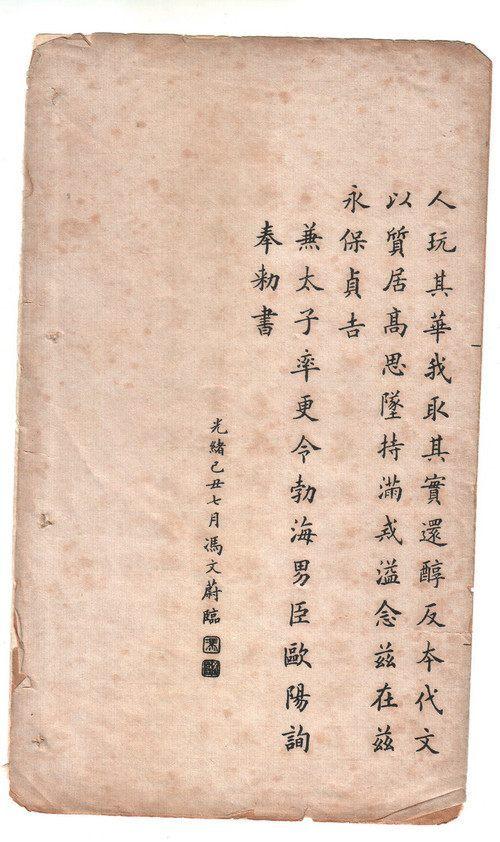 人玩其華我取其實還醇反本代文
以質居高思墜持滿戒溢念茲在茲
永保貞吉
兼太子率更令勃海男臣歐陽詢
奉勑書
光緒己丑七月馮文蔚臨